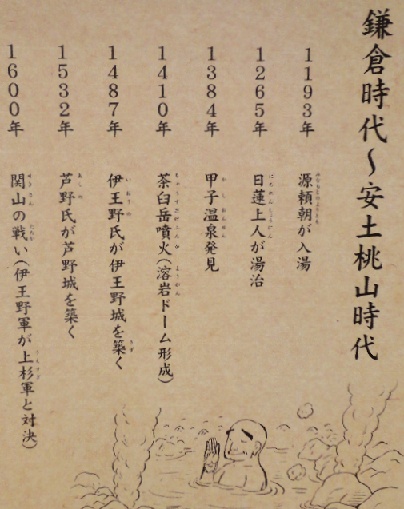 鎌倉時代〜安土桃山時代
1193年 源頼朝が入湯
1265年 日蓮上人が湯治
1384年 甲子温泉発見
1410年 茶臼岳噴火(溶岩ドーム形成)
1487年 伊王野氏が伊王野城を築く
1532年 芦野氏が芦野城を築く
1600年 関山の戦い(伊王野軍が上杉軍と対決)